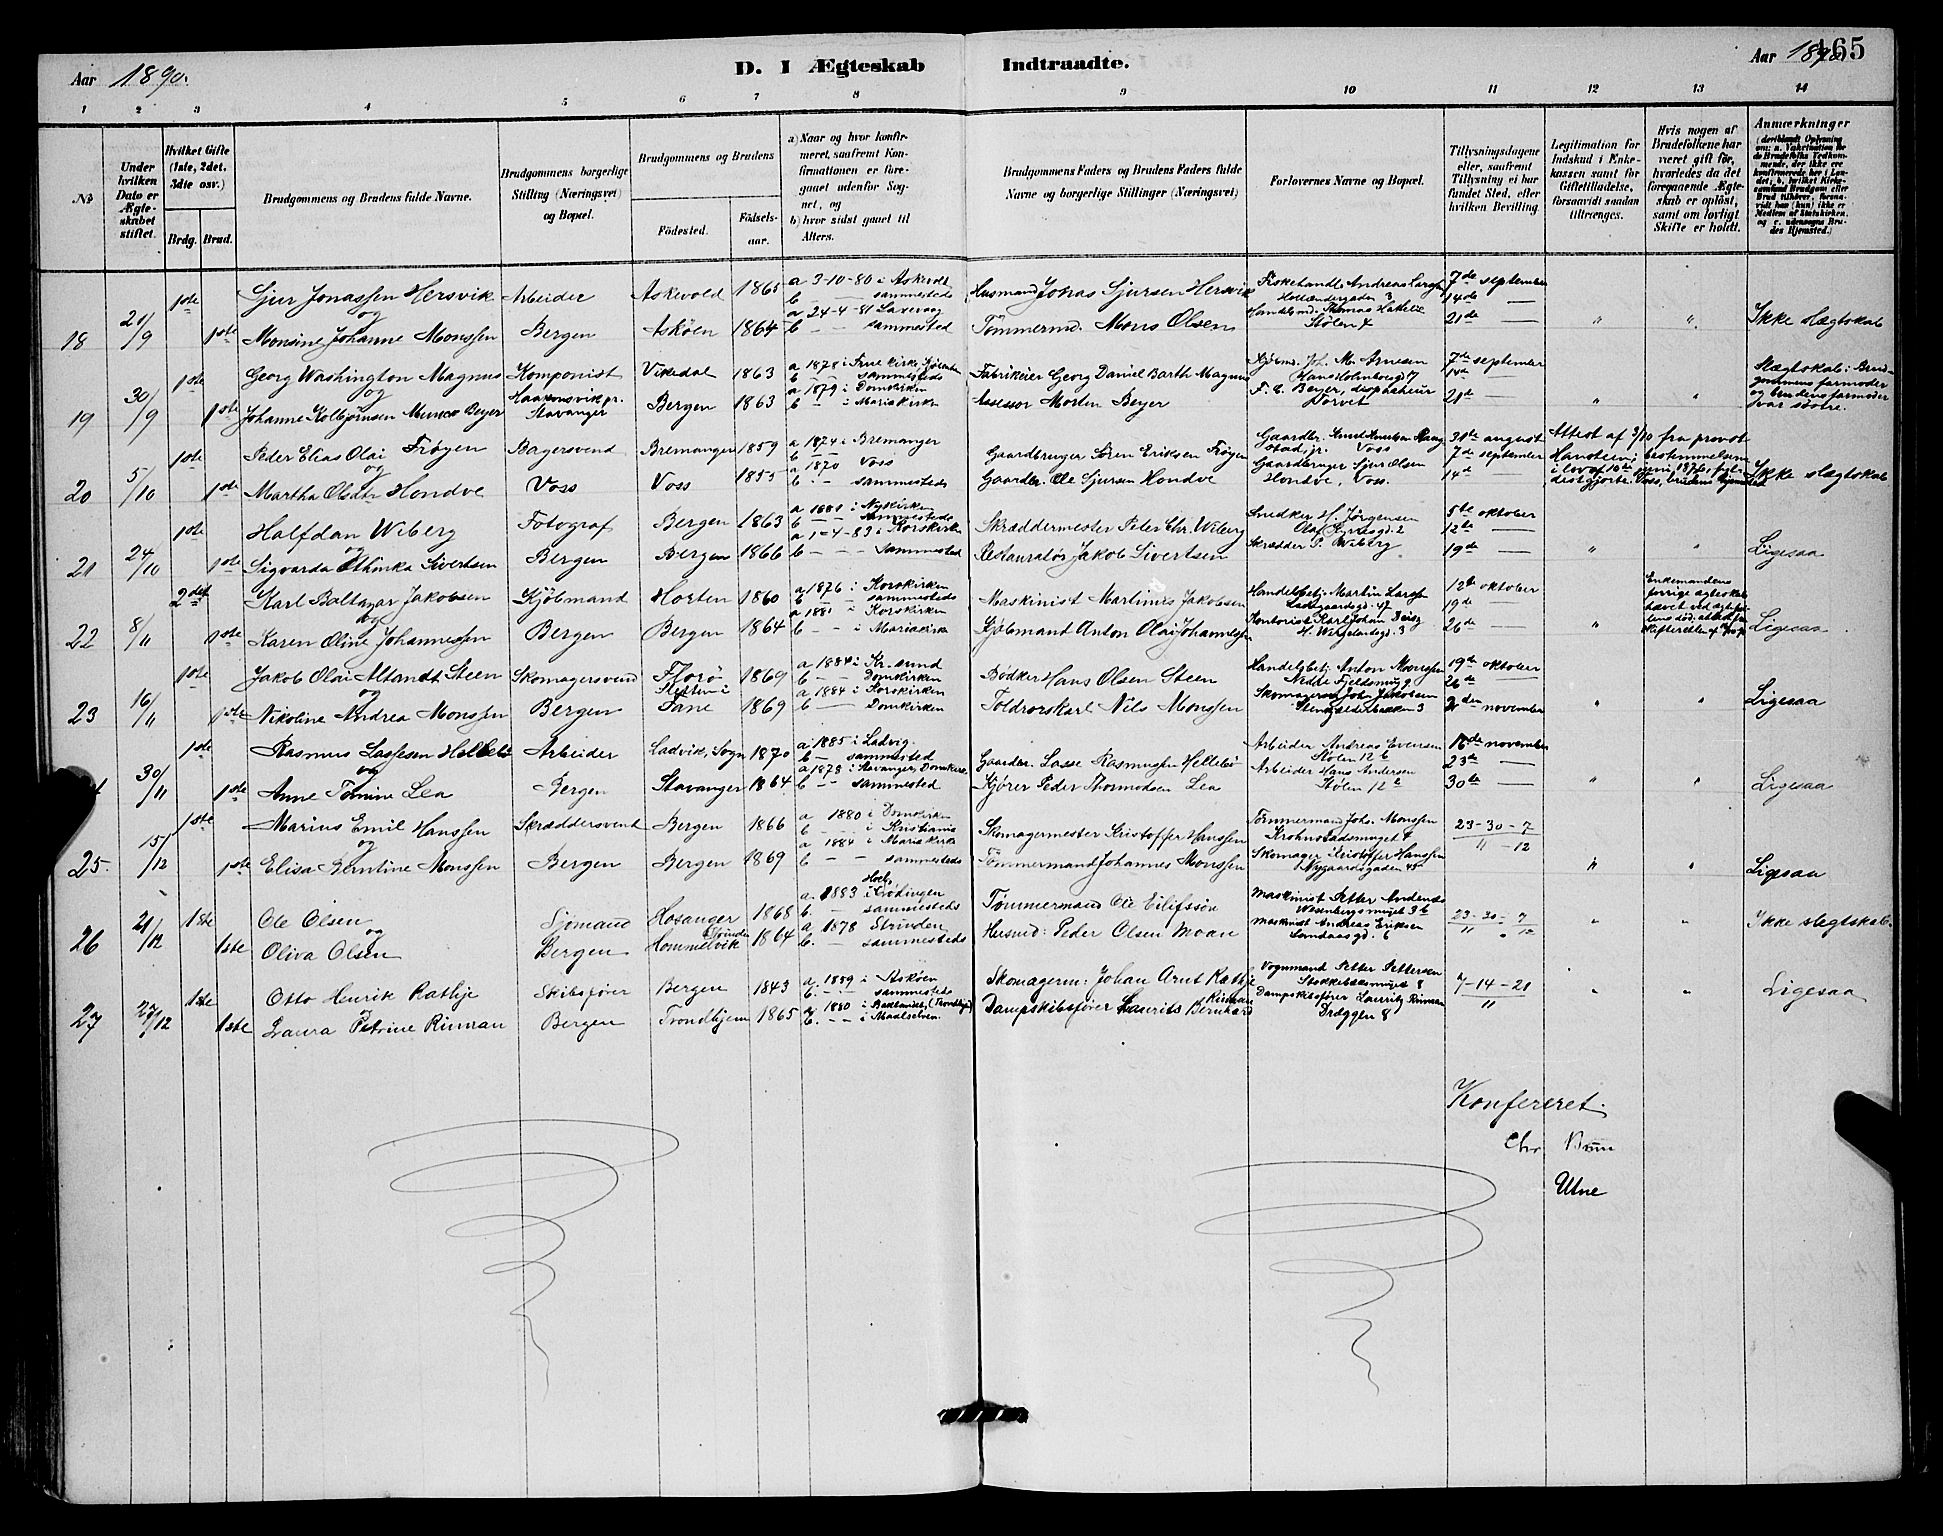 Aar 1890.
D. I Ægteskab Indtraadte.
Aar 1890
165
1 2 3 4 5 6 7 8 9 10 11 12 13 14
№
Under hvilken Dato er Ægteskabet stiftet.
Hvilket Gifte (1ste, 2det, 3die osv.)
Brdg. Brud.
Brudgommens og Brudens fulde Navne.
Brudgommens borgerlige Stilling (Næringsvei) og Bopæl.
Brudgommens og Brudens
Födested. Födselsaar.
a) Naar og hvor konfirmeret, saafremt Konfirmationen er foregaaet udenfor Sognet, og
b) hvor sidst gaaet til Alters.
Brudgommens Faders og Brudens Faders fulde Navne og borgerlige Stillinger (Næringsvei)
Forlovernes Navne og Bopæl.
Tillysningsdagene eller, saafremt Tillysning ei har fundet Sted, efter hvilken Bevilling.
Legitimation for Indskud i Enkekassen samt for Giftetilladelse, forsaavidt saadan tiltrænges.
Hvis nogen af Brudefolkene har været gift før, hvorledes da det foregaaende Ægteskab er opløst, samt om lovligt Skifte er holdt.
Anmærkninger
1ste Sjur Jonassen Hersvik Arbeider Askevold 1865 a 3-10-80 i Askevold Husmand Jonas Sjursen Hersvik Fiskehandl. Andreas Larsen 7de september
og b — — sammesteds Hollændergaden 3 14de —
18 21/9 1ste Monsine Johanne Monssen Bergen Askøen 1864 a 24-4-81 b — — sammested Tömmermd. Mons Olsen Stølen 4 21de — " " Ikke slegtskab
1ste Georg Washington Magnus Komponist Vikedal 1863 a 1878 i Frue kirke, b sammesteds Fabrikeier Georg Daniel Barth Magnus Kjöbmd. Joh. M. Arnesen 7de september 14de Slægtskab: Brudgommens farmoder
og Haakonsvik pr. Stavanger
19 30/9 1ste Johanne Kolbjørnsen Munco Beyer Bergen 1863 a 1879 i Domkirken b — i Mariakirken Assessor Morten Beyer F. C. Beyer, dispacheur Torvet 21de — " " og brudens farmoder var søstre.
1ste Peder Elias Olai Frøyen Bagersvend Bremanger 1859 a 1874 i Bremanger Gaardbruger Søren Eriksen Frøyen Voss 31te august Attest af 3/10 fra provst
og 7de september
20 5/10 1ste Martha Olsdtr Hondve Voss Voss 1855 a 1870 Voss b — sammesteds Gaardbr. Ole Sjursen Hondve Gaardbruger Sjur Olsen Hondve, Voss. 14de Ikke slegtskab
1ste Halfdan Wiberg Fotograf Bergen 1863 a 1881 i Nykirken b — — sammesteds Skræddermester Peder Chr. Wiberg Snedker H. Jörgensen 5te oktober
og 12te —
21 24/10 1ste Sigvarda Athinka Sivertsen Bergen Bergen 1866 a 1-4-83 i Korskirken b — — Sammested Restauratör Jakob Sivertsen Skrædder P. Wiberg 19de — " " Ligesaa
2det Karl Baltazar Jakobsen Kjöbmand Horten 1860 a 1876 i Korskirken b — sammesteds Maskinist Martinus Jakobsen Handelsbetj. Martin Larsen Ladegaardsgd. 47 12te oktober Enkemandens forrige egteskab hævet ved
og 19de —
22 8/11 1ste Karen Oline Johannessen Bergen Bergen 1864 a 1881 i Korskirken b — — i Mariakirk Kjöbmand Anton Olai Johannessen Kontorist Karl Johan 26de — Ligesaa
1ste Jakob Olai Altandt Steen Skomagersvend Florø 1869 a 1884 i Kr.sund b — Domkirken Bødker Hans Olsen Steen Handelsbetj. Anton Monssen Nedre Fjeldsmug 9 19de oktober
og 26de —
23 16/11 1ste Nikoline Andrea Monssen Bergen Fane 1869 a 1884 i Korskirken b — Domkirken Toldrorskarl Nils Monssen Skomagersv. John Jakobsen 2den november " " Ligesaa
1ste Rasmus Lassesen Hellebö Arbeider Ladvik, Sogn 1870 a 1885 i Ladvig. b — sammested Gaardbr. Lasse Rasmussen Hellebö Arbeider Andreas Evensen Stölen 12 b 16de november
og 23de —
30/11 1ste Anne Tomine Lea Bergen Stavanger 1864 a 1878 i Stavanger, Domkirk. b — — sammested Kjörer Peder Thormodsen Lea Arbeider Hans Andersen Stølen 12 30te — " " Ligesaa
1ste Marius Emil Hanssen Skræddersvend Bergen 1866 a 1880 i Domkirken b — — i Kristiania Skomagermester Kristoffer Hanssen Tömmermand Johs. Monssen 23-30-7
og 11 - 12
25. 15/12 1ste Elisa Berntine Monssen Bergen Bergen 1869 a 1884 i Mariakirk b — — sammesteds Tömmermand Johannes Monssen Skomager Kristoffer Hanssen Nygaardsgaden 45 " " Ligesaa
1ste Ole Olsen Sjömand Hosanger 1868 a. 1883 b. — sammesteds Tömmermand Ole Eilifssön Maskinist Petter Andersen 23-30-7
og 11 " 12
26 21/12 1ste Oliva Olsen Bergen Hommelvik 1864 a. 1878 Strinden b. — sammesteds Husmd: Peder Olsen Moan Maskinist Andreas Eriksen Landaasgd. 6 " " Ikke slegtskab.
1ste Otto Henrik Rathje Skibsförer Bergen 1843 a. 1859 i Askøen b. — — sammesteds Skomagerm: Johan Arnt Rathje Vognmand Petter Pettersen 7-14-21
og 11
27 27/12 1ste Laura Petrine Rinnan Bergen Trondhjem 1865 a. 1880 i Baklandet, (Trondhj.) b. — — i Maalselven. Dampskibsförer Laurits Bernhard Rinnan Dampskibsförer Lauritz Rinnan Dræggen 8 " " Ligesaa
Konfereret.
Chr Brun
Utne